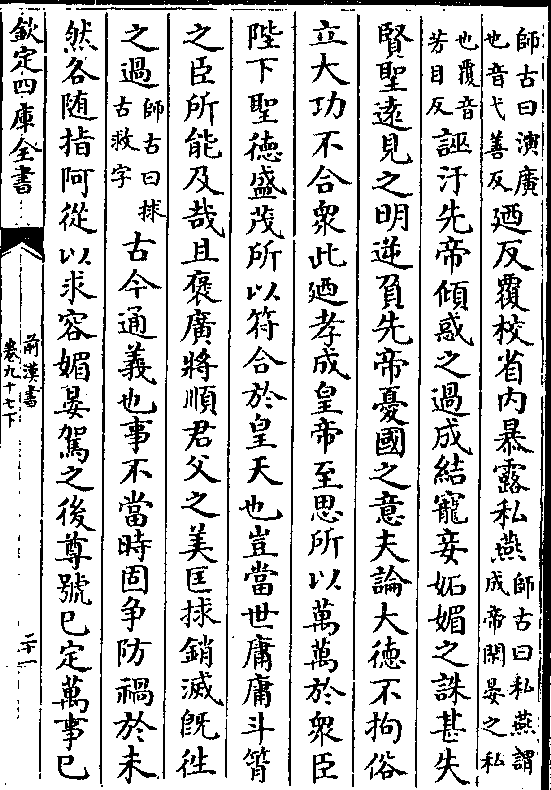 師古曰演廣
也音弋善反
廼反覆校省内暴露私燕
師古曰私燕謂
成帝閑晏之私
也覆音
芳目反
誣汙先帝傾惑之過成結寵妾妬媚之誅甚失
賢聖遠見之明逆負先帝憂國之意夫論大德不拘俗
立大功不合衆此廼孝成皇帝至思所以萬萬於衆臣
陛下聖德盛茂所以符合於皇天也豈當世庸庸斗筲
之臣所能及哉且褒廣將順君父之美匡捄銷滅既往
之過
師古曰捄
古救字
古今通義也事不當時固争防禍於未
然各随指阿從以求容媚晏駕之後尊號已定萬事已
欽定四庫全書
前漢書
卷九十七下
二十一